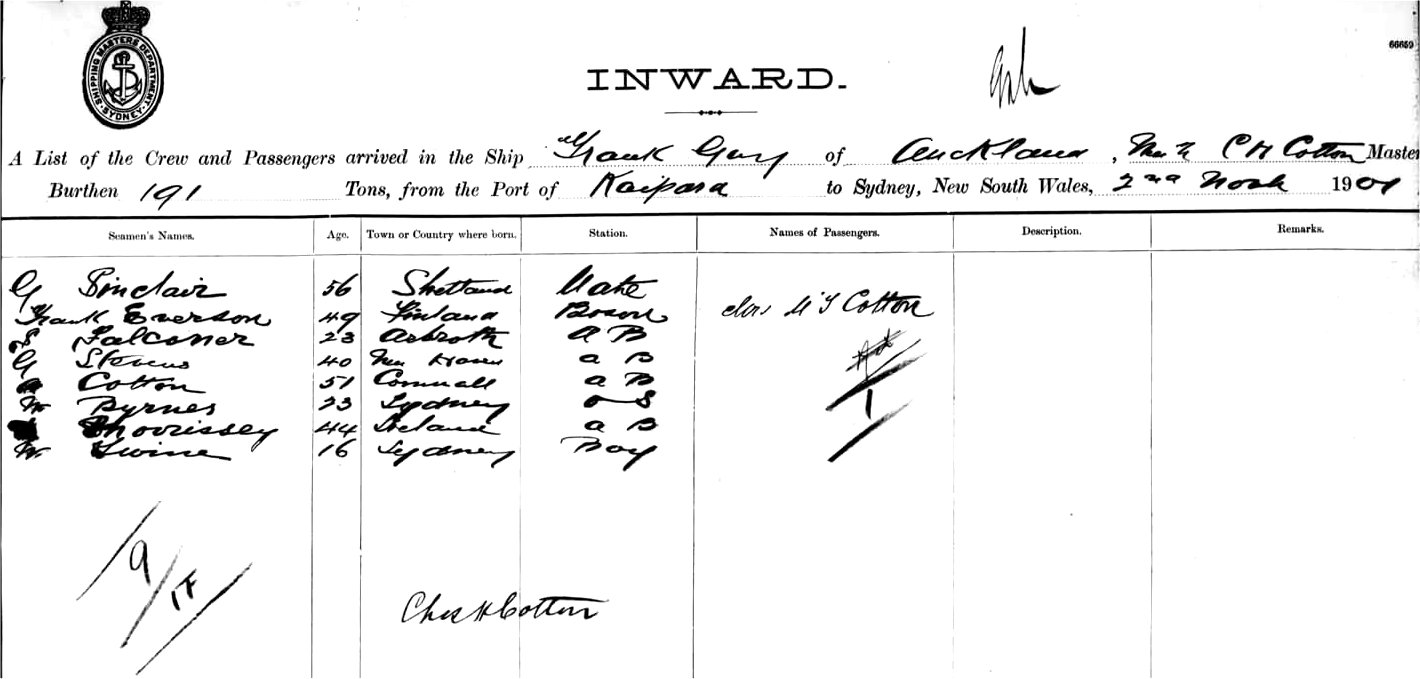 SHIPPING MASTERS DEPARTMENT
SYDNEY
66659
INWARD.
A List of the Crew and Passengers arrived in the Ship Frank Guy of Auckland, C H Cotton Master
Burthen 191 Tons, from the Port of Kaipara to Sydney, New South Wales, 2nd 190
Seamen's Names. Age. Town or Country where born. Station. Names of Passengers. Description. Remarks.
G Sinclair 56 Shetland Mate
Frank Everson 49 Finland Boson Mrs Cotton
Falconer 23 Arbroth A B
G Stevens 40 a B
Cotton 51 Cornwall a B
W Byrnes 23 Sydney O S 1
Morrissey 44 Ireland a B
W 16 Sydney Boy
9
Chas H Cotton